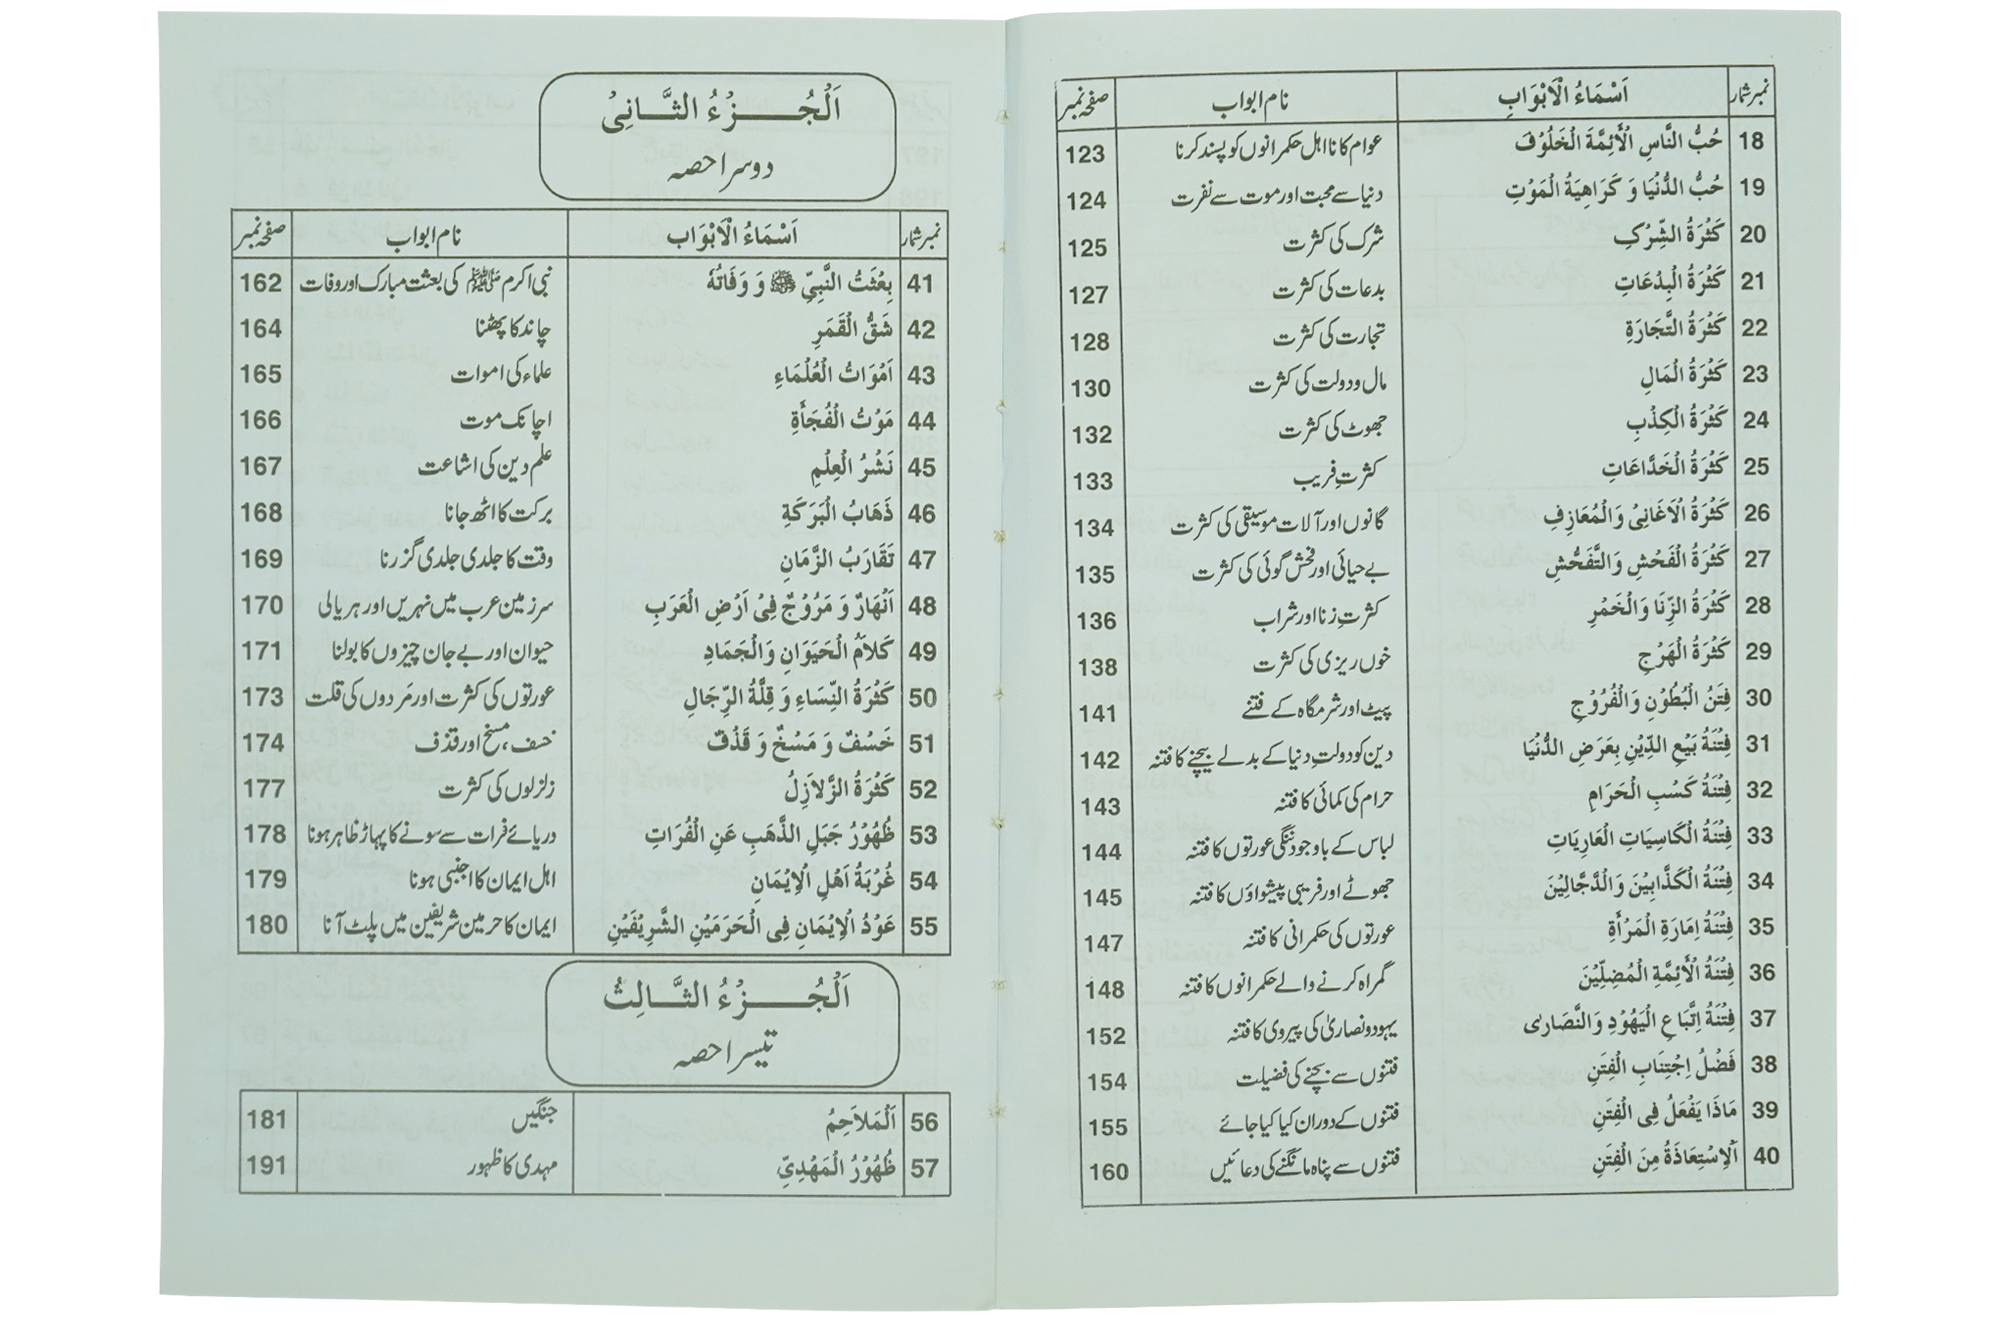 نمبر شمار اَسْمَاءُ الْاَبْوَابِ نام ابواب صفحہ نمبر
18 حُبُّ النَّاسِ الْأَئِمَّةَ الْخَلُوْفَ عوام کا نااہل حکمرانوں کو پسند کرنا 123
19 حُبُّ الدُّنْيَا وَ كَرَاهِيَةُ الْمَوْتِ دنیا سے محبت اور موت سے نفرت 124
20 كَثْرَةُ الشِّرْكِ شرک کی کثرت 125
21 كَثْرَةُ الْبِدْعَاتِ بدعات کی کثرت 127
22 كَثْرَةُ التَّجَارَةِ تجارت کی کثرت 128
23 كَثْرَةُ الْمَالِ مال و دولت کی کثرت 130
24 كَثْرَةُ الْكِذْبِ جھوٹ کی کثرت 132
25 كَثْرَةُ الْخَدَّاعَاتِ کثرتِ فریب 133
26 كَثْرَةُ الْاَغَانِىْ وَالْمُعَازِفِ گانوں اور آلات موسیقی کی کثرت 134
27 كَثْرَةُ الْفَحْشِ وَالتَّفَحُّشِ بے حیائی اور فحش گوئی کی کثرت 135
28 كَثْرَةُ الزِّنَا وَالْخَمْرِ کثرتِ زنا اور شراب 136
29 كَثْرَةُ الْهَرْجِ خوں ریزی کی کثرت 138
30 فِتَنُ الْبُطُوْنِ وَالْفُرُوْجِ پیٹ اور شرمگاہ کے فتنے 141
31 فِتْنَةُ بَيْعِ الدِّيْنِ بِعَرَضِ الدُّنْيَا دین کو دولتِ دنیا کے بدلے بیچنے کا فتنہ 142
32 فِتْنَةُ كَسْبِ الْحَرَامِ حرام کی کمائی کا فتنہ 143
33 فِتْنَةُ الْكَاسِيَاتِ الْعَارِيَاتِ لباس کے باوجود ننگی عورتوں کا فتنہ 144
34 فِتْنَةُ الْكَذَّابِيْنَ وَالدَّجَّالِيْنَ جھوٹے اور فریبی پیشواؤں کا فتنہ 145
35 فِتْنَةُ اِمَارَةِ الْمَرْأَةِ عورتوں کی حکمرانی کا فتنہ 147
36 فِتْنَةُ الْأَئِمَّةِ الْمُضِلِّيْنَ گمراہ کرنے والے حکمرانوں کا فتنہ 148
37 فِتْنَةُ اِتِّبَاعِ الْيَهُوْدِ وَالنَّصَارٰى یہود و نصاریٰ کی پیروی کا فتنہ 152
38 فَضْلُ اِجْتِنَابِ الْفِتَنِ فتنوں سے بچنے کی فضیلت 154
39 مَاذَا يَفْعَلُ فِى الْفِتَنِ فتنوں کے دوران کیا کیا جائے 155
40 اَلْاِسْتِعَاذَةُ مِنَ الْفِتَنِ فتنوں سے پناہ مانگنے کی دعائیں 160
اَلْجُزْءُ الثَّانِىْ
دوسرا حصہ
نمبر شمار اَسْمَاءُ الْاَبْوَابِ نام ابواب صفحہ نمبر
41 بِعْثَتُ النَّبِىِّ ﷺ وَ وَفَاتُهٗ نبی اکرم ﷺ کی بعثت مبارک اور وفات 162
42 شَقُّ الْقَمَرِ چاند کا پھٹنا 164
43 اَمْوَاتُ الْعُلْمَاءِ علماء کی اموات 165
44 مَوْتُ الْفُجَأَةِ اچانک موت 166
45 نَشْرُ الْعِلْمِ علم دین کی اشاعت 167
46 ذَهَابُ الْبَرَكَةِ برکت کا اٹھ جانا 168
47 تَقَارَبُ الزَّمَانِ وقت کا جلدی جلدی گزرنا 169
48 اَنْهَارٌ وَ مَرُوْجٌ فِىْ اَرْضِ الْعَرَبِ سرزمین عرب میں نہریں اور ہریالی 170
49 كَلاَمُ الْحَيَوَانِ وَالْجَمَادِ حیوان اور بے جان چیزوں کا بولنا 171
50 كَثْرَةُ النِّسَاءِ وَ قِلَّةُ الرِّجَالِ عورتوں کی کثرت اور مَردوں کی قلت 173
51 خَسْفٌ وَ مَسْخٌ وَ قَذْفٌ خسف، مسخ اور قذف 174
52 كَثْرَةُ الزَّلاَزِلُ زلزلوں کی کثرت 177
53 ظُهُوْرُ جَبَلِ الذَّهَبِ عَنِ الْفُرَاتِ دریائے فرات سے سونے کا پہاڑ ظاہر ہونا 178
54 غُرْبَةُ اَهْلِ الْاِيْمَانِ اہل ایمان کا اجنبی ہونا 179
55 عَوْدُ الْاِيْمَانِ فِى الْحَرَمَيْنِ الشَّرِيْفَيْنِ ایمان کا حرمین شریفین میں پلٹ آنا 180
اَلْجُزْءُ الثَّالِثُ
تیسرا حصہ
56 اَلْمَلاَحِمُ جنگیں 181
57 ظُهُوْرُ الْمَهْدِيِّ مہدی کا ظہور 191